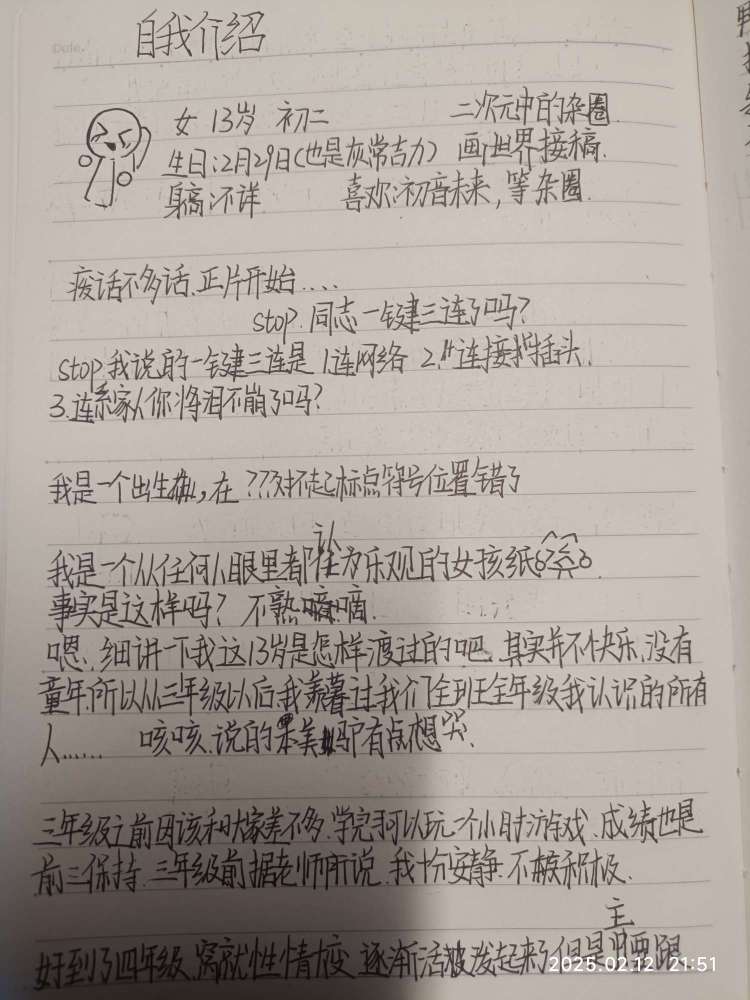 自我介绍
女 13岁 初二 二次元中的杂圈.
生日:2月29日(也是灰常吉力) 画世界接稿.
身高:不详. 喜欢:初音未来,等杂圈.
废话不多话.正片开始....
stop.同志一键三连了吗?
stop.我说的一键三连是 1.连网络 2.连接插头.
3.连系家人你将泪不崩了吗?
我是一个出生,在???对怀起标点符号位置错了
认
我是一个从任何人眼里都为乐观的女孩纸
事实是这样吗? 不熟嘀嘀.
嗯.细讲一下我这13岁是怎样渡过的吧.其实并不快乐.没有
童年.所以从三年级以后.我羡暮过我们全班全年级我认识的所有
人...... 咳咳.说的美吗有点想哭.
三年级之前因该和大家差不多.学完可以玩一个小时游戏.成绩也是
前三保持.三年级前据老师所说.我十份安静.不积极.
主
好到了四年级.窝就性情大变.逐渐活发起来了但是要跟.
2025.02.12 21:51